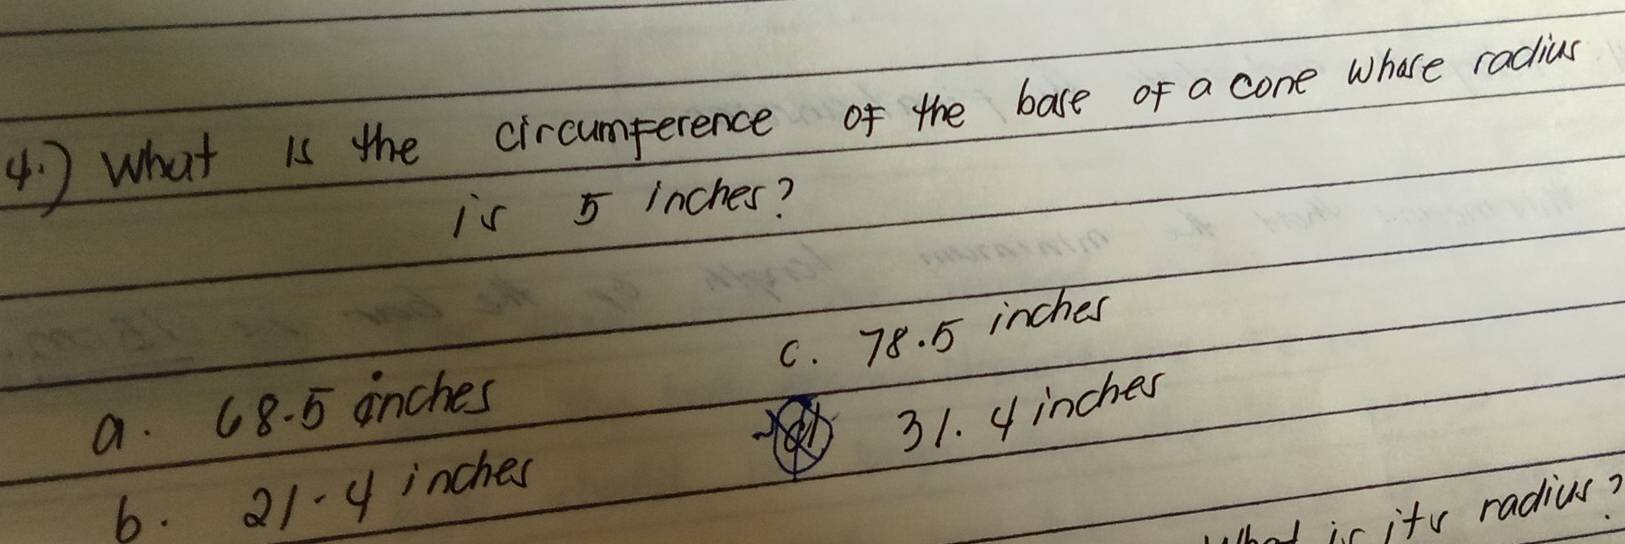 4.) What is the circumference of the base of a cone whose radius
is 5 inches?
a. 68.5 inches
b. 21.4 inches
c. 78.5 inches
d 31.4 inches
What is its radius?